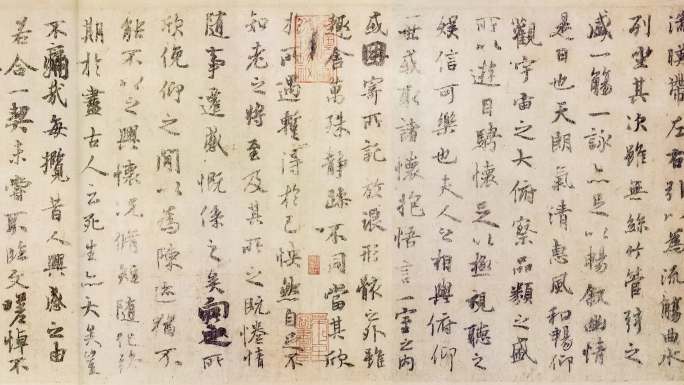 湍暎帶左右引以為流觴曲水
列坐其次雖無絲竹管弦之
盛一觴一詠亦足以暢敘幽情
是日也天朗氣清惠風和暢仰
觀宇宙之大俯察品類之盛
所以遊目騁懷足以極視聽之
娛信可樂也夫人之相與俯仰
一世或取諸懷抱悟言一室之內
或因寄所託放浪形骸之外雖
趣舍萬殊靜躁不同當其欣
於所遇暫得於己怏然自足不
知老之將至及其所之既惓情
隨事遷感慨係之矣向之所
欣俛仰之閒以為陳迹猶不
能不以之興懷況脩短隨化終
期於盡古人云死生亦大矣豈
不痛哉每攬昔人興感之由
若合一契未嘗不臨文嗟悼不